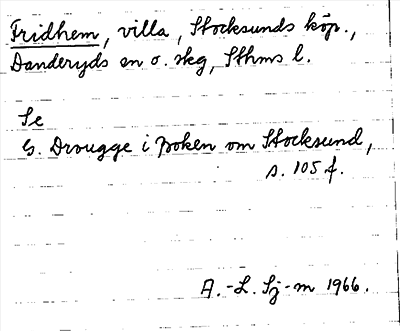 Fridhem, villa, Stocksunds köp.,
Danderyds sn o. skg, Sthms l.
Se
G. Drougge i boken om Stocksund,
s. 105 f.
A.-L. Sj-m 1966.